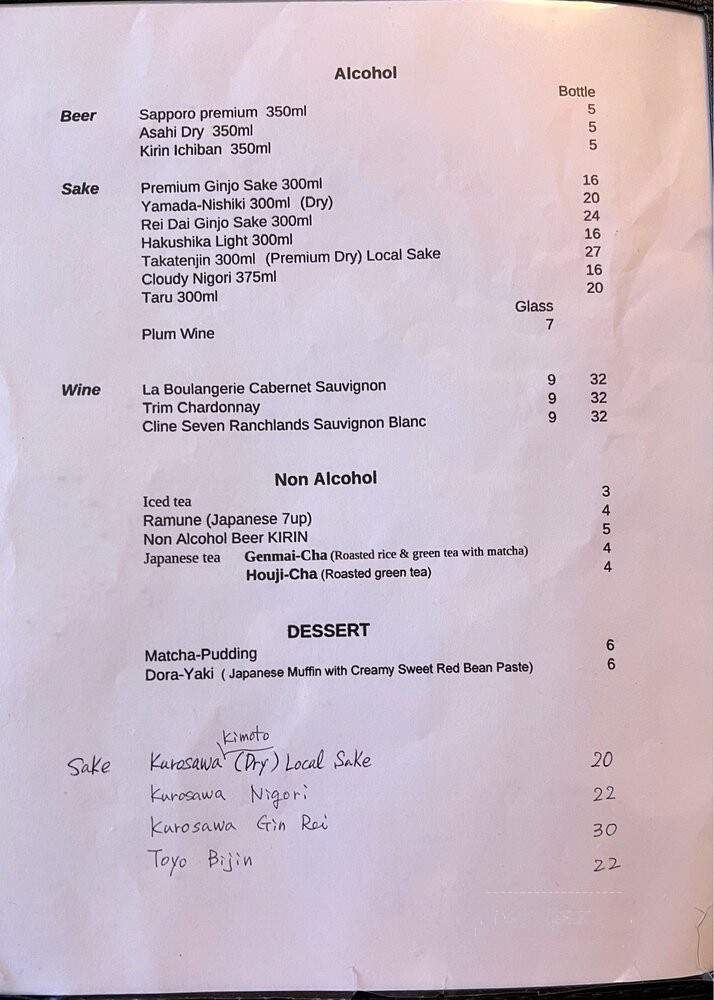 Alcohol
Bottle
Beer Sapporo premium 350ml 5
Asahi Dry 350ml 5
Kirin Ichiban 350ml 5
Sake Premium Ginjo Sake 300ml 16
Yamada-Nishiki 300ml (Dry) 20
Rei Dai Ginjo Sake 300ml 24
Hakushika Light 300ml 16
Takatenjin 300ml (Premium Dry) Local Sake 27
Cloudy Nigori 375ml 16
Taru 300ml 20
Glass
Plum Wine 7
Wine La Boulangerie Cabernet Sauvignon 9 32
Trim Chardonnay 9 32
Cline Seven Ranchlands Sauvignon Blanc 9 32
Non Alcohol
Iced tea 3
Ramune (Japanese 7up) 4
Non Alcohol Beer KIRIN 5
Japanese tea Genmai-Cha (Roasted rice & green tea with matcha) 4
Houji-Cha (Roasted green tea) 4
DESSERT
Matcha-Pudding 6
Dora-Yaki ( Japanese Muffin with Creamy Sweet Red Bean Paste) 6
Kimoto
Sake Kurosawa (Dry) Local Sake 20
Kurosawa Nigori 22
Kurosawa Gin Rei 30
Toyo Bijin 22